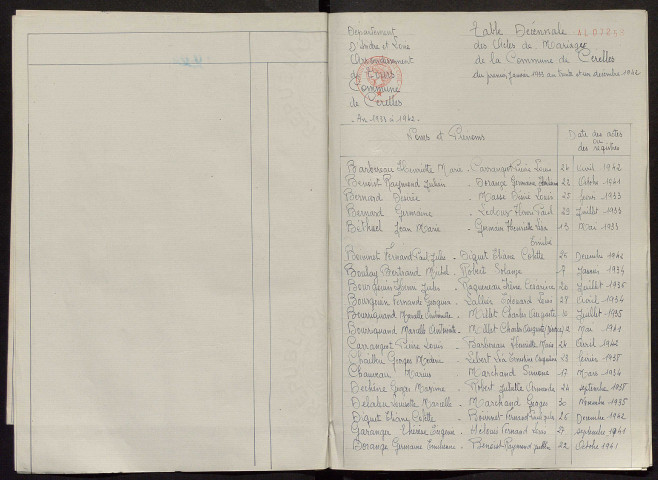 Département
D'Indre et Loire
Arrondissement
de Tours
Commune
de Cerelles
- An 1933 à 1942 -
Table Décennale
des Actes de Mariages
de la Commune de Cerelles
du premier Janvier 1933 au trente et un décembre 1942
Noms et Prénoms
Date des actes
ou
des registres
Barbereau Henriette Marie - Carrangeot Pierre Louis 24 Avril 1942
Benoist Raymond Julien - Berange Germaine Emilienne 22 Octobre 1941
Bernard Désirée - Masse Louis 25 Février 1933
Bernard Germaine - Ledoux Henri Paul 23 Juillet 1935
Bethuel Jean Marie - Germain Henriette 13 Mai 1933
Boinnet Fernand Paul Jules - Diguet Eliane Colette 26 Décembre 1942
Boulay Bertrand Michel - Robert Solange 9 Janvier 1934
Bourgouin Henri Jules - Ragueneau Irène 20 Juillet 1935
Bourgouin Fernande Georgina - Lallier Edouard Louis 28 Avril 1934
Boursiquand Marcelle Antoinette - Millet Charles Auguste 10 Juillet 1935
Boursiquand Marcelle Antoinette - Millet Charles Auguste 2 Mai 1941
Carrangeot Pierre Louis - Barbereau Henriette Marie 24 Avril 1942
Georges - 23 Février 1935
Chauveau Marius - Marchand Simone 17 Mars 1934
Georges Maxime - Robert Juliette 24 septembre 1935
Marcelle - Marchand Georges 30 Novembre 1935
Diguet Eliane Colette - Boinnet Fernand Paul Jules 26 Décembre 1942
Garanger Thérèse Eugénie - Fernand Louis 27 septembre 1941
Berange Germaine Emilienne - Benoist Raymond Julien 22 Octobre 1941